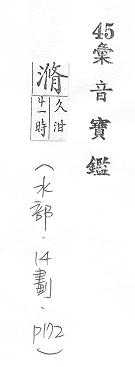 45彙音寶鑑
滫
久泔
丩一時
（水部．14劃．p172）